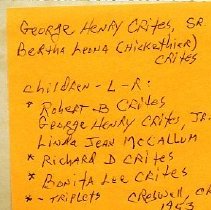 George Henry Crites, Sr
Bertha Leona (Hickethier)
Crites
Children - L - R:
* Robert B Crites
George Henry Crites, Jr.
Linda Jean McCallum
* Richard D Crites
* Bonita Lee Crites
* - Triplets Creswell, OR
1953